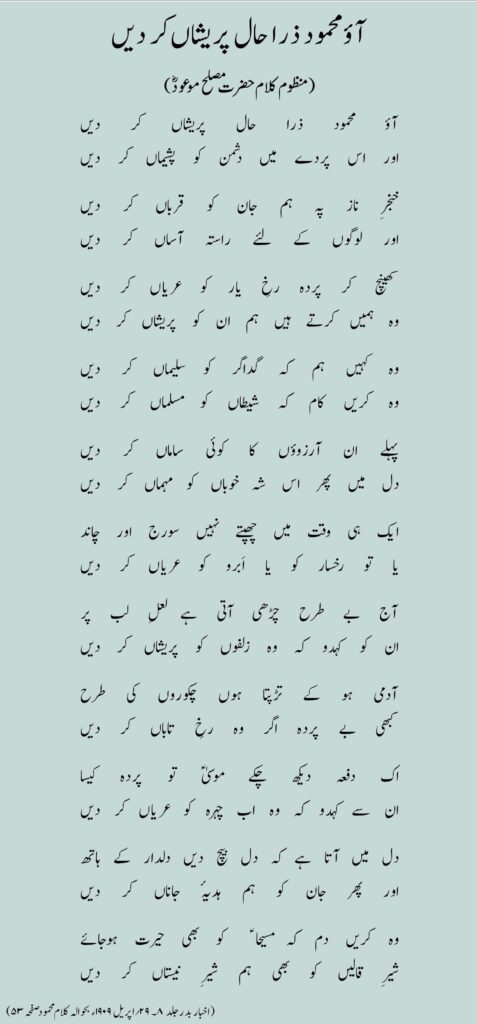 آؤ محمود ذرا حال پریشاں کر دیں
(منظوم کلام حضرت مصلح موعودؓ)
آؤ محمود ذرا حال پریشاں کر دیں
اور اس پردے میں دشمن کو پشیماں کر دیں
خنجرِ ناز پہ ہم جان کو قرباں کر دیں
اور لوگوں کے لئے راستہ آساں کر دیں
کھینچ کر پردہ رخِ یار کو عریاں کر دیں
وہ ہمیں کرتے ہیں ہم ان کو پریشاں کر دیں
وہ کہیں ہم کہ گداگر کو سلیماں کر دیں
وہ کریں کام کہ شیطاں کو مسلماں کر دیں
پہلے ان آرزوؤں کا کوئی ساماں کر دیں
دل میں پھر اس شہ خوباں کو مہماں کر دیں
ایک ہی وقت میں چھپتے نہیں سورج اور چاند
یا تو رخسار کو یا اَبرو کو عریاں کر دیں
آج بے طرح چڑھی آتی ہے لعلِ لب پر
ان کو کہدو کہ وہ زلفوں کو پریشاں کر دیں
آدمی ہو کے تڑپتا ہوں چکوروں کی طرح
کبھی بے پردہ اگر وہ رخِ تاباں کر دیں
اک دفعہ دیکھ چکے موسیٰؑ تو پردہ کیسا
ان سے کہدو کہ وہ اب چہرہ کو عریاں کر دیں
دل میں آتا ہے کہ دل بیچ دیں دلدار کے ہاتھ
اور پھر جان کو ہم ہدیۂ جاناں کر دیں
وہ کریں دم کہ مسیحاؑ کو بھی حیرت ہوجائے
شیرِ قالیں کو بھی ہم شیرِ نیستاں کر دیں
(اخبار بدر جلد ۸۔ ۲۹؍اپریل ۱۹۰۹ء بحوالہ کلام محمود صفحہ ۵۳)